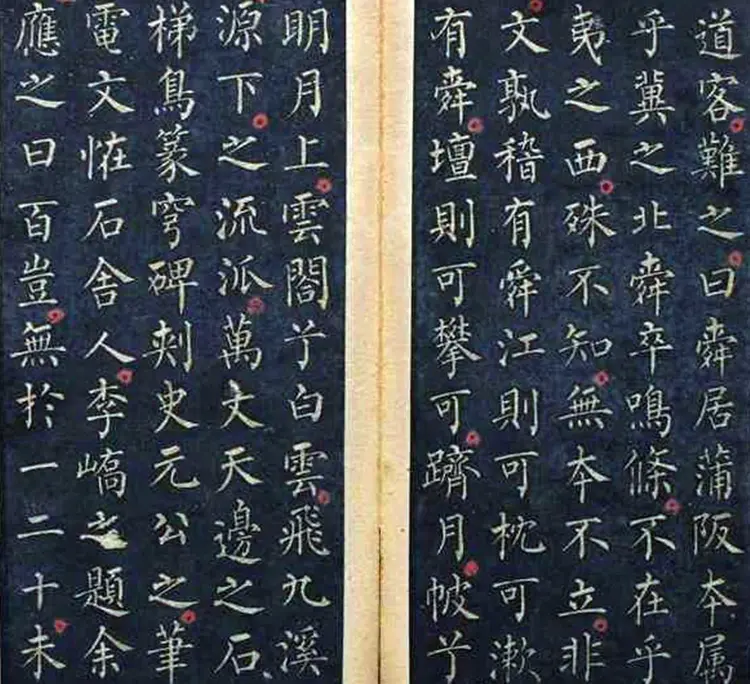 道客難之曰舜居蒲阪本属
乎冀之北舜卒鳴條不在乎
夷之西殊不知無本不立非
文孰稽有舜江則可枕可漱
有舜壇則可攀可躋月帔兮
明月上雲閣兮白雲飛九溪
源下之流派萬丈天邊之石
梯鳥篆穹碑刺史元公之筆
電文恠石舍人李嶠之題余
應之曰百豈無於一二十未